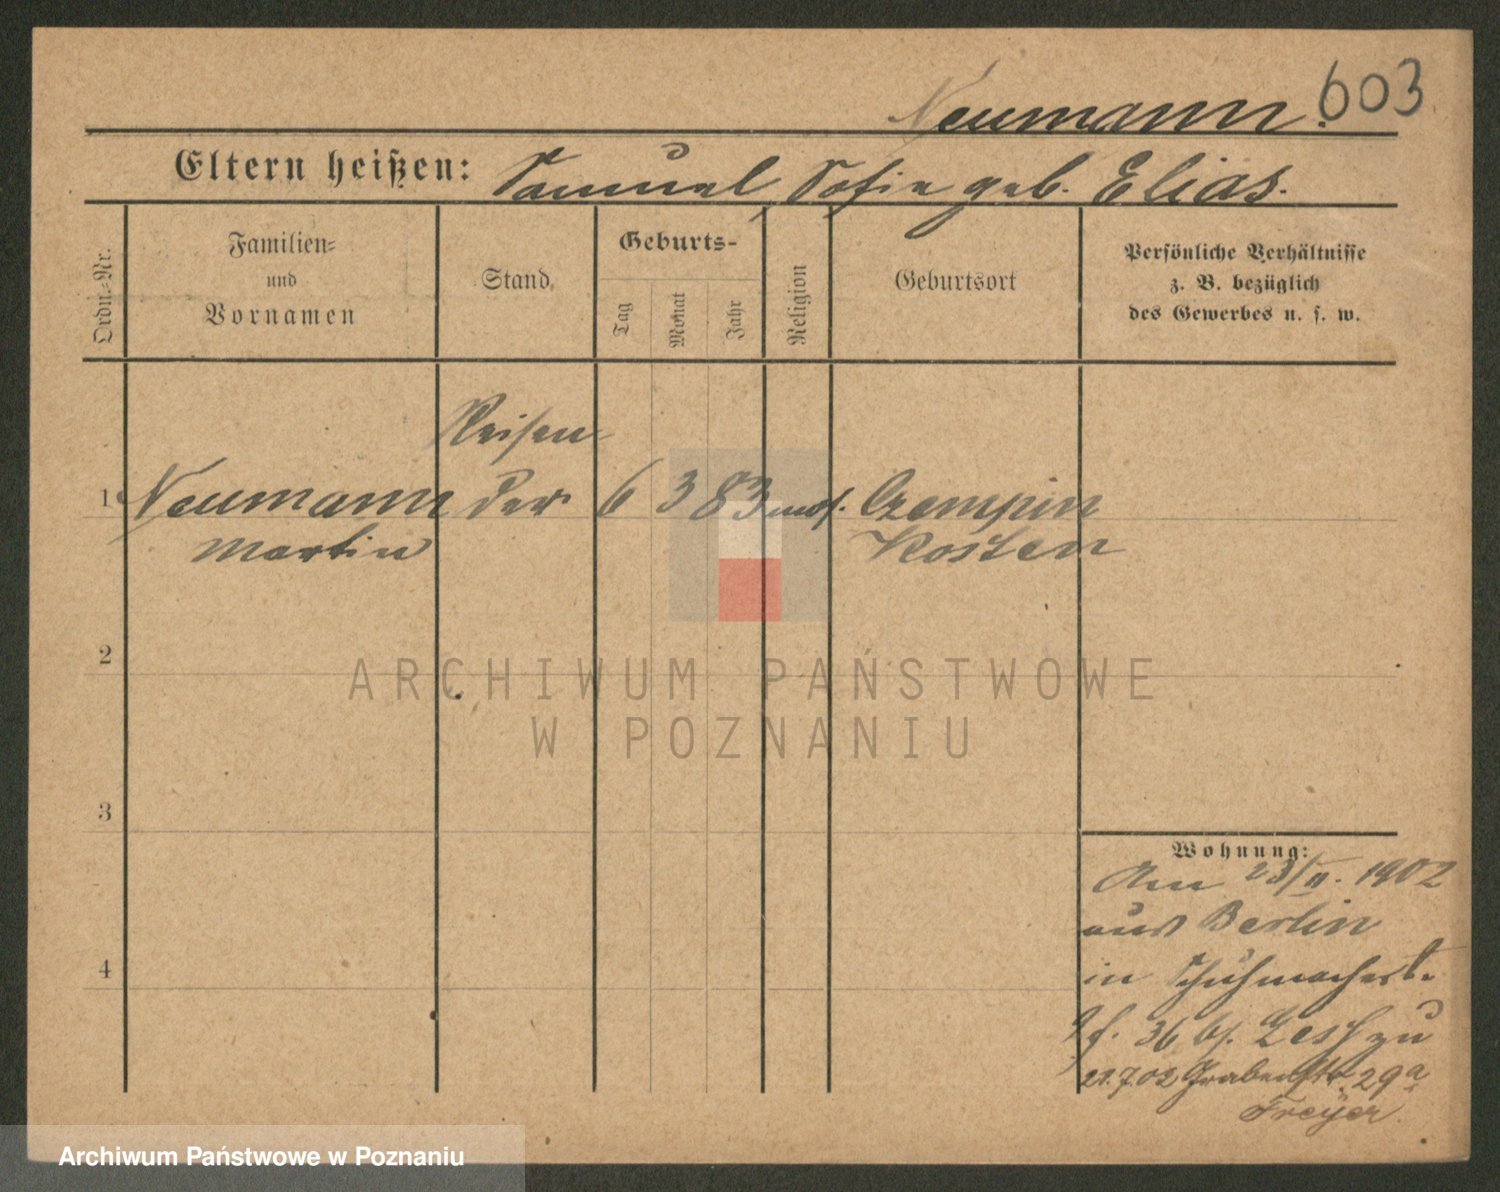 Neumann. 603
Eltern heißen: Samuel, Sofie geb. Elias.
Ordn.-Nr.
Familien-
und
Vornamen
Stand
Geburts-
Tag
Monat
Jahr
Religion
Geburtsort
Persönliche Verhältnisse
z. B. bezüglich
des Gewerbes u. s. w.
Reisen-
1 Neumann der 6 3 83 mos. Czempin
Martin Kosten
2
ARCHIWUM PAŃSTWOWE
W POZNANIU
3
Wohnung:
Am 23/II. 1902
aus Berlin
in Schuhmacherst.
4
36 bj.
22.7.02 Grabenstr. 29a
Freyer.
Archiwum Państwowe w Poznaniu